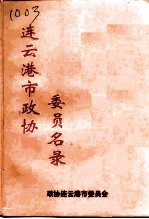 1003
连云港市政协
委员名录
政协连云港市委员会